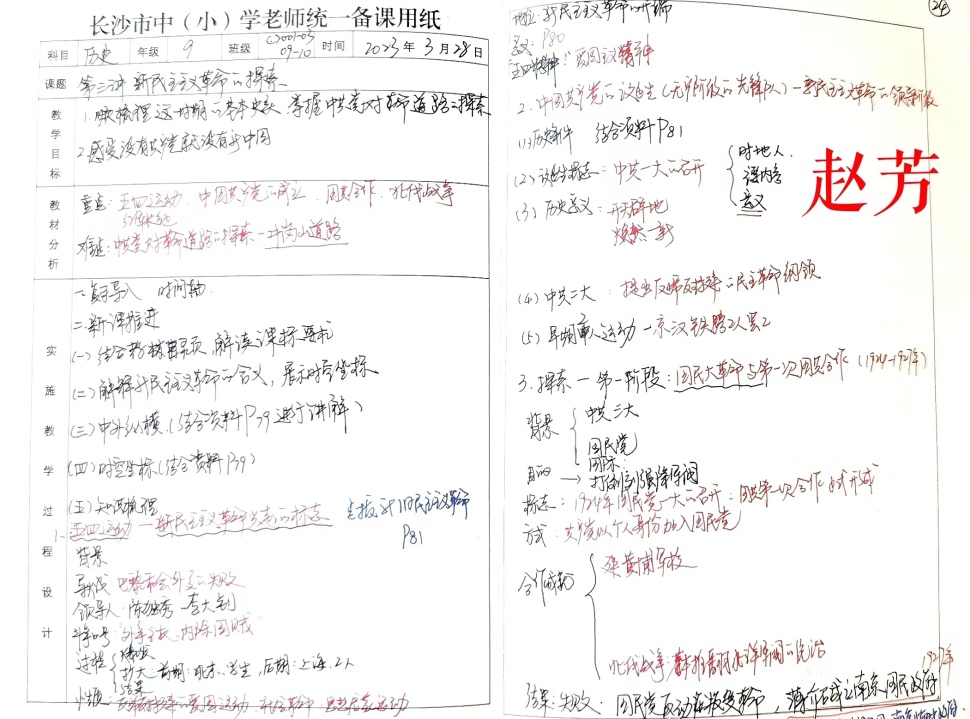 长沙市中(小)学老师统一备课用纸
科目 历史 年级 9 班级 C2001-03 09-10 时间 2023年3月28日
课题 第三讲 新民主主义革命的探索
教学目标
1.梳理这一时期的基本史实,掌握中共党对革命道路的探索
2.感受没有共产党就没有新中国
教材分析
重点:五四运动、中国共产党的成立、国共合作、北伐战争
难点:中共党对革命道路的探索—井冈山道路
实施教学过程设计
一.复习导入 时间轴
二.新课推进
(一)结合教材单元首页,解读课标要求
(二)解释新民主主义革命的含义,展示时空坐标
(三)中外纵横(结合资料P79进行讲解)
(四)时空坐标(结合资料P79)
(五)知识梳理
1.五四运动—新民主主义革命开始的标志
P81
背景
导火线 巴黎和会外交的失败
领导人 陈独秀 李大钊
口号 外争主权、内除国贼
过程 爆发
扩大 前期:北京.学生,后期:上海.工人
结果
性质
地位:新民主主义革命的开端
意义 P80
五四精神:爱国主义精神
2.中国共产党的诞生(无产阶级的先锋队)—新民主主义革命的领导阶级
(1)历史条件 结合资料P81
(2)诞生标志:中共一大的召开 时地人.
内容
意义
(3)历史意义:开天辟地
焕然一新
赵芳
(4)中共二大:提出反帝反封建的民主革命纲领
(5)早期工人运动—京汉铁路工人罢工
3.探索—第一阶段:国民大革命与第一次国共合作(1924-1927年)
背景 中共三大
国民党
国际
目的→打倒列强除军阀
标志:1924年国民党一大的召开:国共第一次合作正式形成
方式:共产党以个人身份加入国民党
合作成就 建黄埔军校
北伐战争:基本推翻北洋军阀的统治
1927年
结果:失败:国民党反动派叛变革命,蒋介石成立南京国民政府
24